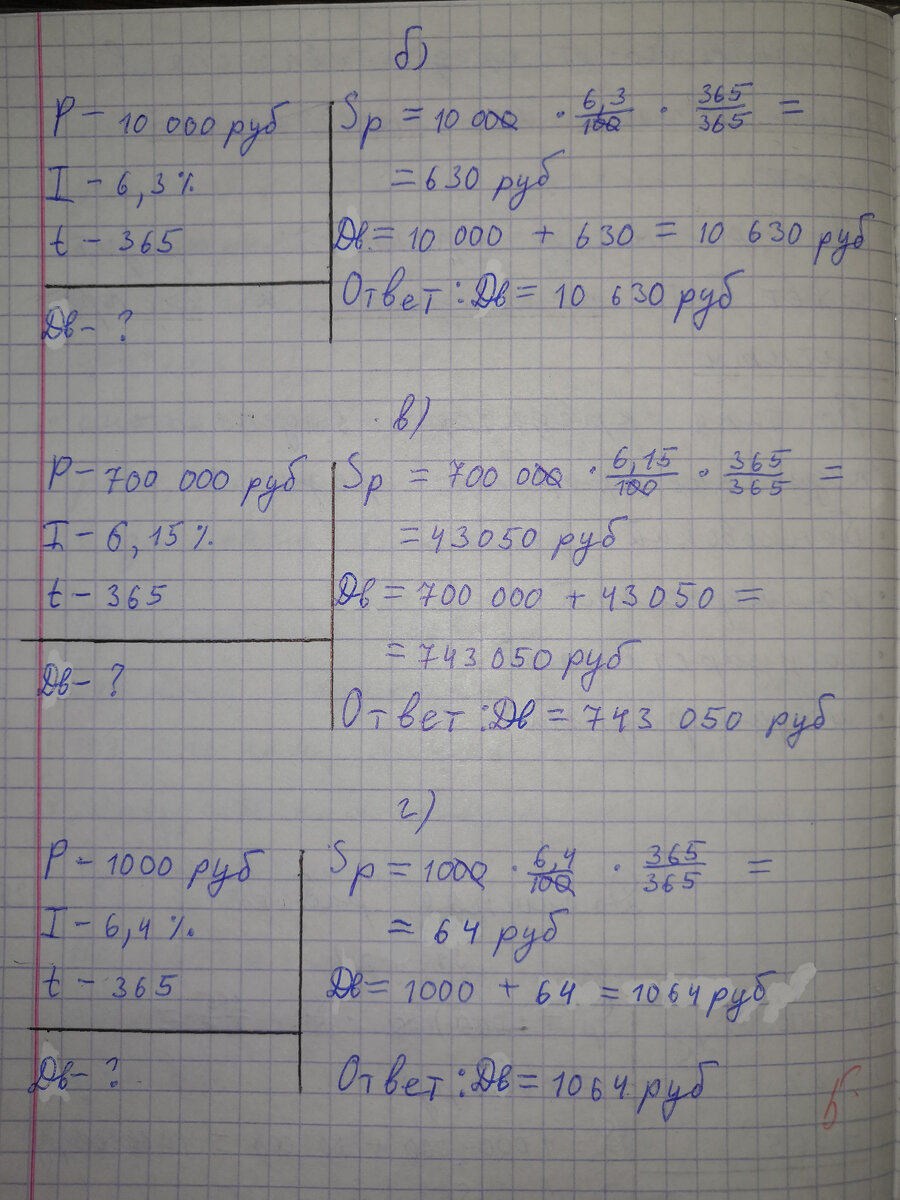 б)
P - 10 000 руб
I - 6,3 %
t - 365
Дв - ?
Sp = 10 000 · 6,3/100 · 365/365 =
= 630 руб
Дв = 10 000 + 630 = 10 630 руб
Ответ: Дв = 10 630 руб
в)
P - 700 000 руб
I - 6,15 %
t - 365
Дв - ?
Sp = 700 000 · 6,15/100 · 365/365 =
= 43050 руб
Дв = 700 000 + 43050 =
= 743 050 руб
Ответ: Дв = 743 050 руб
г)
P - 1000 руб
I - 6,4 %
t - 365
Дв - ?
Sp = 1000 · 6,4/100 · 365/365 =
= 64 руб
Дв = 1000 + 64 = 1064 руб
Ответ: Дв = 1064 руб